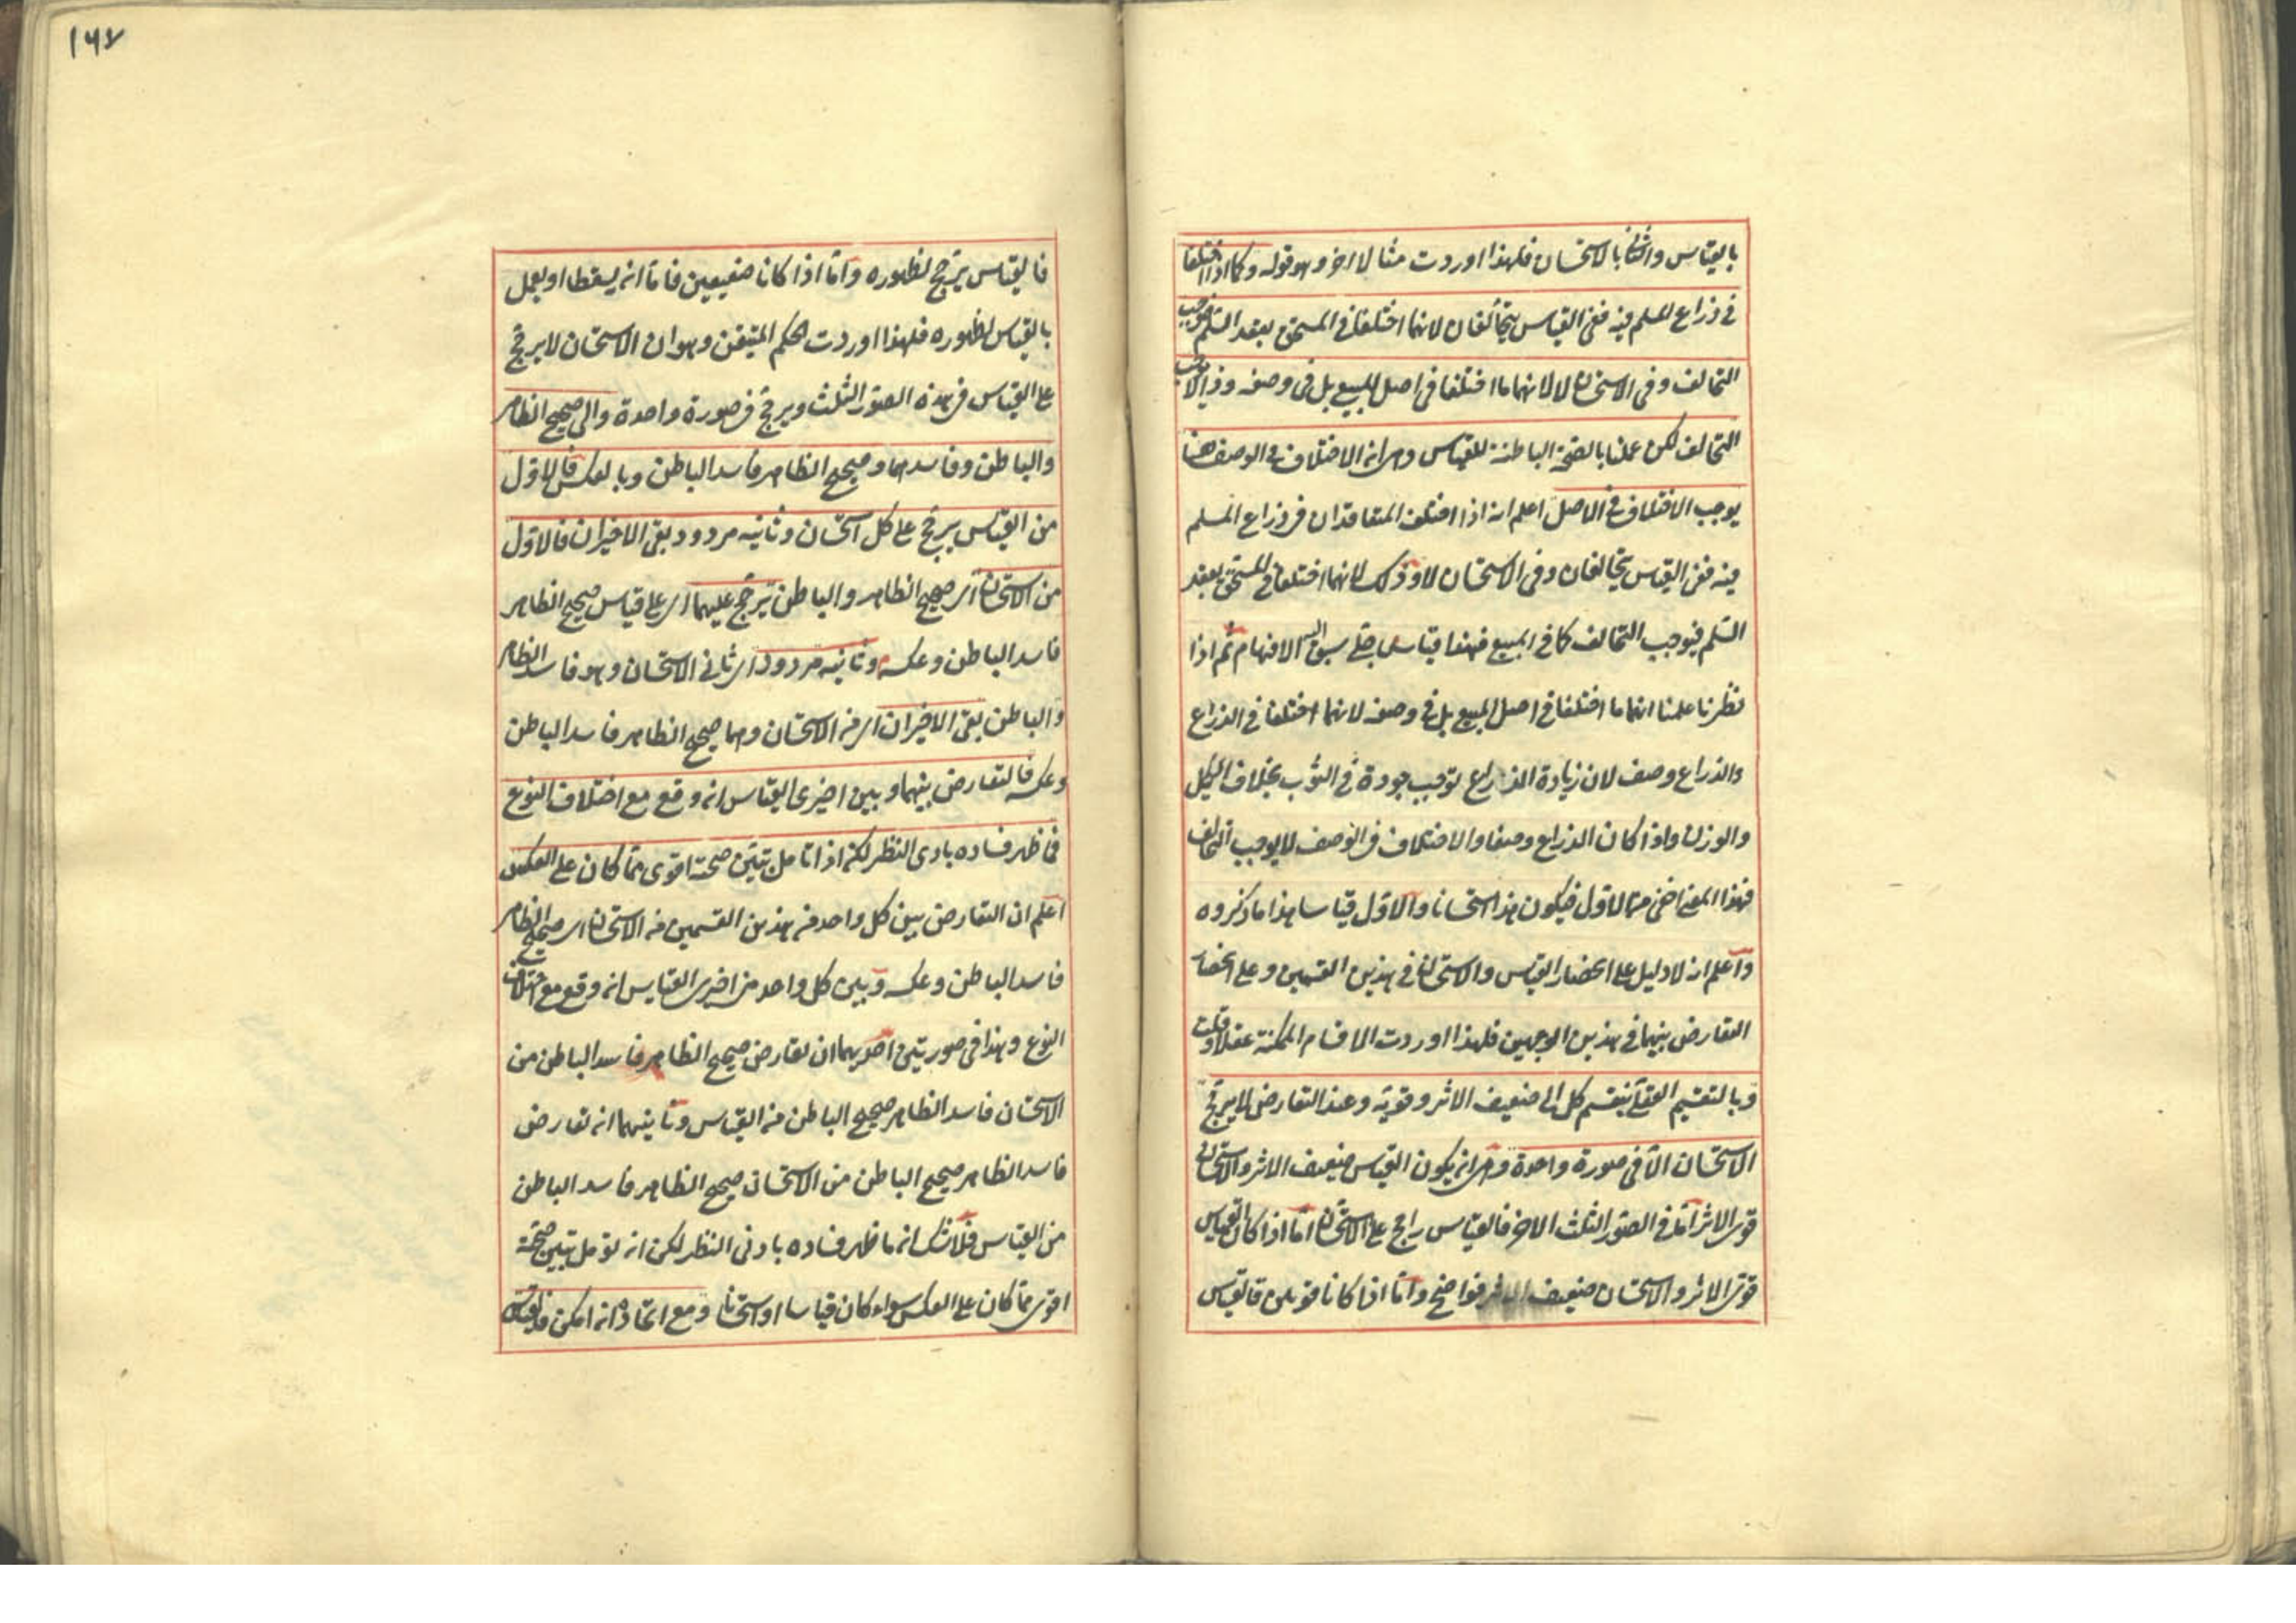 بالقياس والثانى بالاستحسان فلهذا اوردت مثالا اخر وهو قوله وكما اذا اختلفا
فى ذراع المسلم فيه ففى القياس يتحالفان لانهما اختلفا فى المستحق بعقد السلم فيوجب
التحالف وفى الاستحسان لا لانهما ما اختلفا فى اصل المبيع بل فى وصفه وذا لا يوجب
التحالف لكن عملنا بالصحة الباطنة للقياس وهى ان الاختلاف فى الوصف هنا
يوجب الاختلاف فى الاصل اعلم انه اذا اختلف المتعاقدان فى ذراع المسلم
فيه ففى القياس يتحالفان وفى الاستحسان لا وذلك لانهما اختلفا فى المستحق بعقد
السلم فيوجب التحالف كما فى المبيع فهذا قياس جلى سبق اليه الافهام ثم اذا
نظرنا علمنا انهما ما اختلفا فى اصل المبيع بل فى وصفه لانهما اختلفا فى الذراع
والذراع وصف لان زيادة الذراع توجب جودة فى الثوب بخلاف الكيل
والوزن واذا كان الذراع وصفا والاختلاف فى الوصف لا يوجب التحالف
فهذا المعنى اخفى من الاول فيكون هذا استحسانا والاول قياسا هذا ما ذكروه
واعلم انه لا دليل على انحصار القياس والاستحسان فى هذين القسمين وعلى انحصار
التعارض بينهما فى هذين الوجهين فلهذا اوردت الاقسام الممكنة عقلا وقلت
وبالتقسيم العقلى ينقسم كل الى ضعيف الاثر وقويه وعند التعارض لا يرجح
الاستحسان الا فى صورة واحدة وهى ان يكون القياس ضعيف الاثر والاستحسان
قوى الاثر اما فى الصور الثلث الاخر فالقياس راجح على الاستحسان اما اذا كان القياس
قوى الاثر والاستحسان ضعيف الاثر فواضح واما اذا كانا قويين فالقياس
١٦٧
فالقياس يرجح لظهوره واما اذا كانا ضعيفين فاما ان يسقطا او يعمل
بالقياس لظهوره فلهذا اوردت الحكم المتيقن وهو ان الاستحسان لا يرجح
على القياس فى هذه الصور الثلث ويرجح فى صورة واحدة والى صحيح الظاهر
والباطن وفاسدهما وصحيح الظاهر فاسد الباطن وبالعكس فالاول
من القياس يرجح على كل استحسان وثانيه مردود بقى الاخيران فالاول
من الاستحسان اى صحيح الظاهر والباطن يرجح عليهما اى على قياس صحيح الظاهر
فاسد الباطن وعكسه وثانيه مردود اى ثانى الاستحسان وهو فاسد الظاهر
والباطن بقى الاخيران اى من الاستحسان وهما صحيح الظاهر فاسد الباطن
وعكسه فالتعارض بينهما وبين اخيرى القياس ان وقع مع اختلاف النوع
فما ظهر فساده بادى النظر لكنه اذا تامل تبين صحته اقوى مما كان على العكس
اعلم ان التعارض بين كل واحد من هذين القسمين من الاستحسان اى صحيح الظاهر
فاسد الباطن وعكسه وبين كل واحد من اخيرى القياس ان وقع مع اختلاف
النوع وهذا فى صورتين احديهما ان تعارض صحيح الظاهر فاسد الباطن من
الاستحسان فاسد الظاهر صحيح الباطن من القياس وثانيتهما ان تعارض
فاسد الظاهر صحيح الباطن من الاستحسان صحيح الظاهر فاسد الباطن
من القياس فلا شك ان ما ظهر فساده بادنى النظر لكن ان تؤمل تبين صحته
اقوى مما كان على العكس سواء كان قياسا او استحسانا ومع اتحاده ان امكن فالقياس